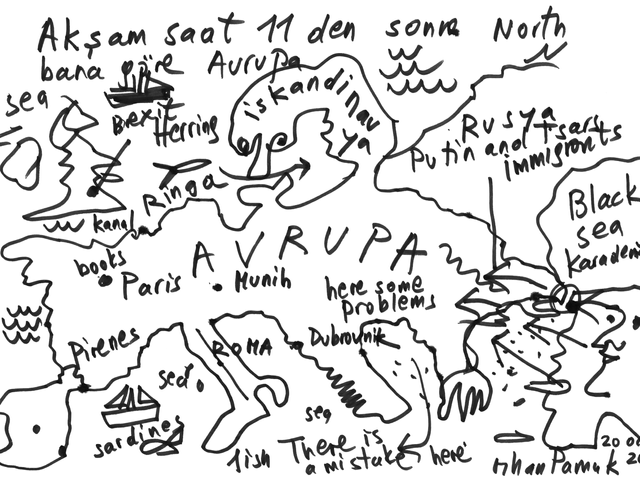 Akşam saat 11 den sonra North
bana göre Avrupa
sea
Brexit
Herring
iskandinav
ya
Rusya Tsars
Putin and
immigrants
Ringa
kanal
Black
sea
Karadeni
AVRUPA
books
Paris
Munih
here some
problems
Pirenes
ROMA
Dubrovnik
sea
sardines
fish
There is
a mistake here
Orhan Pamuk